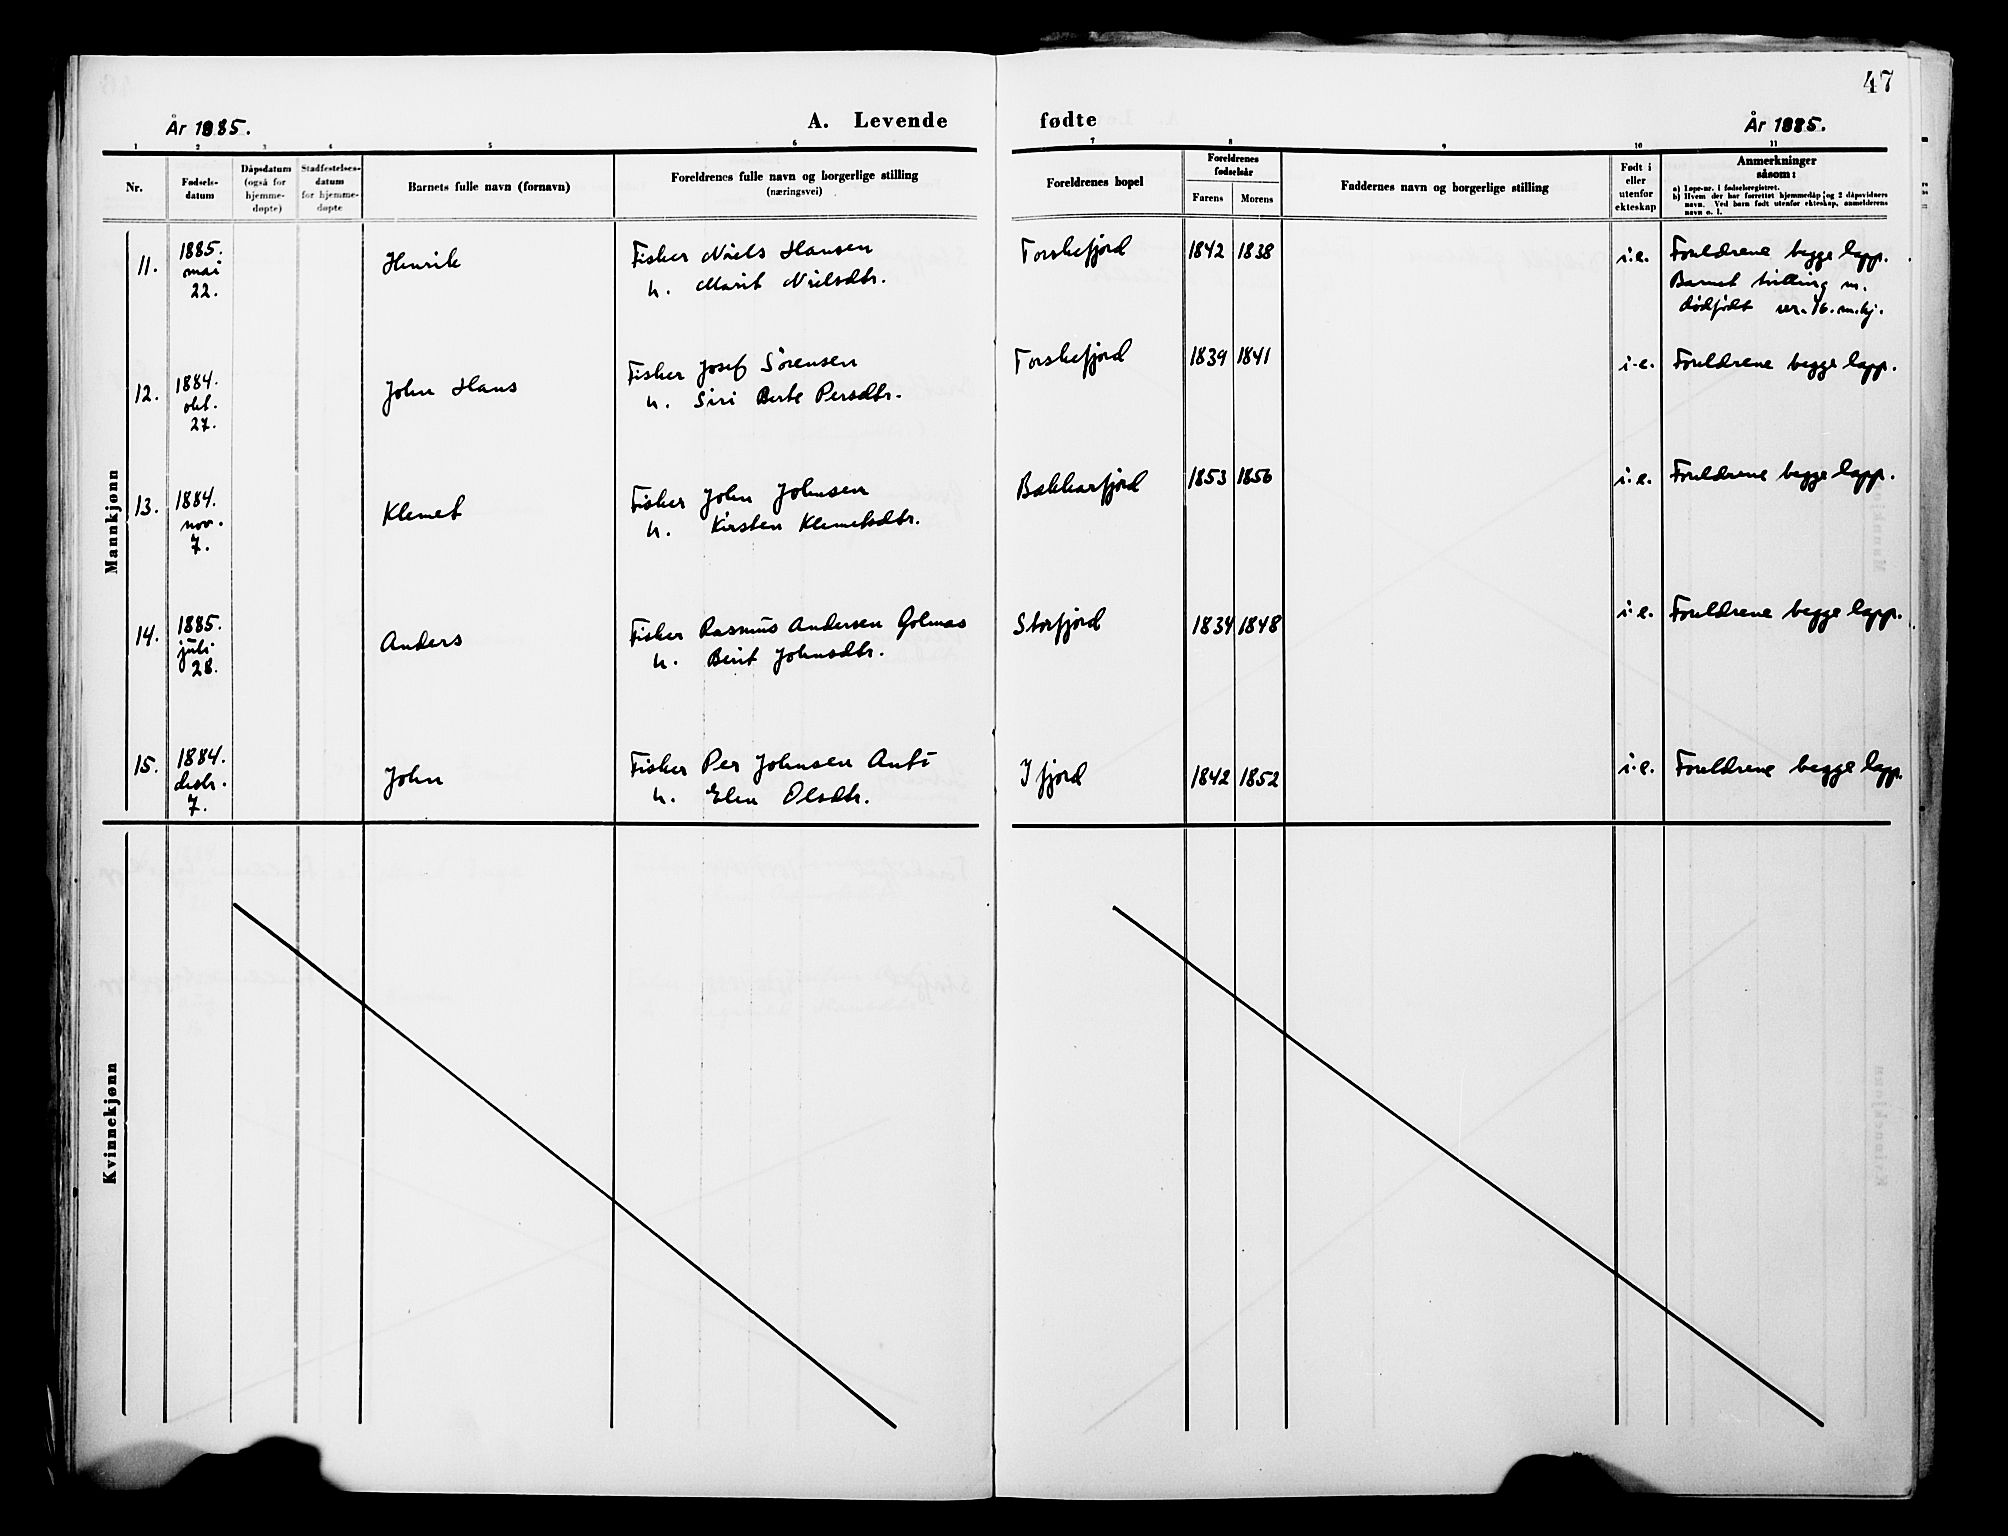 47
År 1885.
A. Levende
fødte
År 1885.
1 2 3 4 5 6 7 8 9 10 11
Nr.
Fødsels-
datum
Dåpsdatum
(også for
hjemme-
døpte)
Stadfestelses-
datum
for hjemme-
døpte
Barnets fulle navn (fornavn)
Foreldrenes fulle navn og borgerlige stilling
(næringsvei)
Foreldrenes bopel
Foreldrenes
fødselsår
Farens
Morens
Faddernes navn og borgerlige stilling
Født i
eller
utenfor
ekteskap
Anmerkninger
såsom:
a) Løpe-nr. i fødselsregistret.
b) Hvem der har forrettet hjemmedåp og 2 dåpsvidners
navn. Ved barn født utenfor ekteskap, anmelderens
navn o. l.
Mannkjønn
11.
1885.
mai
22.
Henrik
Fisker Niels Hansen
h. Marit Nielsdtr.
Torskefjord
1842 1838
i.e.
Foreldrene begge lapp.
Barnet tvilling m.
dødfødt nr. 16. m.kj.
12.
1884.
okt.
27.
John Hans
Fisker Josef Sørensen
h. Siri Berte Persdtr.
Torskefjord
1839 1841
i.e.
Foreldrene begge lapp.
13.
1884.
nov.
7.
Klemet
Fisker John Johnsen
h. Kirsten Klemetsdtr.
Bekkarfjord
1853 1856
i.e.
Foreldrene begge lapp.
14.
1885.
juli.
28.
Anders
Fisker Rasmus Andersen Golmas
h. Berit Johnsdtr.
Storfjord
1834 1848
i.e.
Foreldrene begge lapp.
15.
1884.
desbr.
7.
John
Fisker Per Johnsen Anti
h. Elen Olsdtr.
Ifjord
1842 1852
i.e.
Foreldrene begge lapp.
Kvinnekjønn